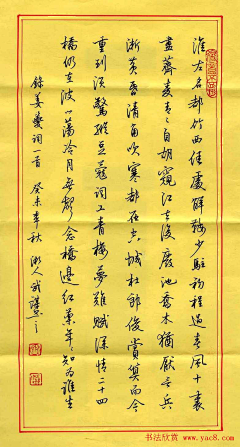 淮左名都竹西佳處解鞍少駐初程過春風十里
盡薺麥青々自胡窺江去後廢池喬木猶厭言兵
漸黃昏清角吹寒都在空城杜郎俊賞算而今
重到須驚縱豆蔻詞工青樓夢難賦深情二十四
橋仍在波心蕩冷月無聲念橋邊紅藥年々知為誰生
錄姜夔詞一首 癸未年秋
书法欣赏 www.yac8.com